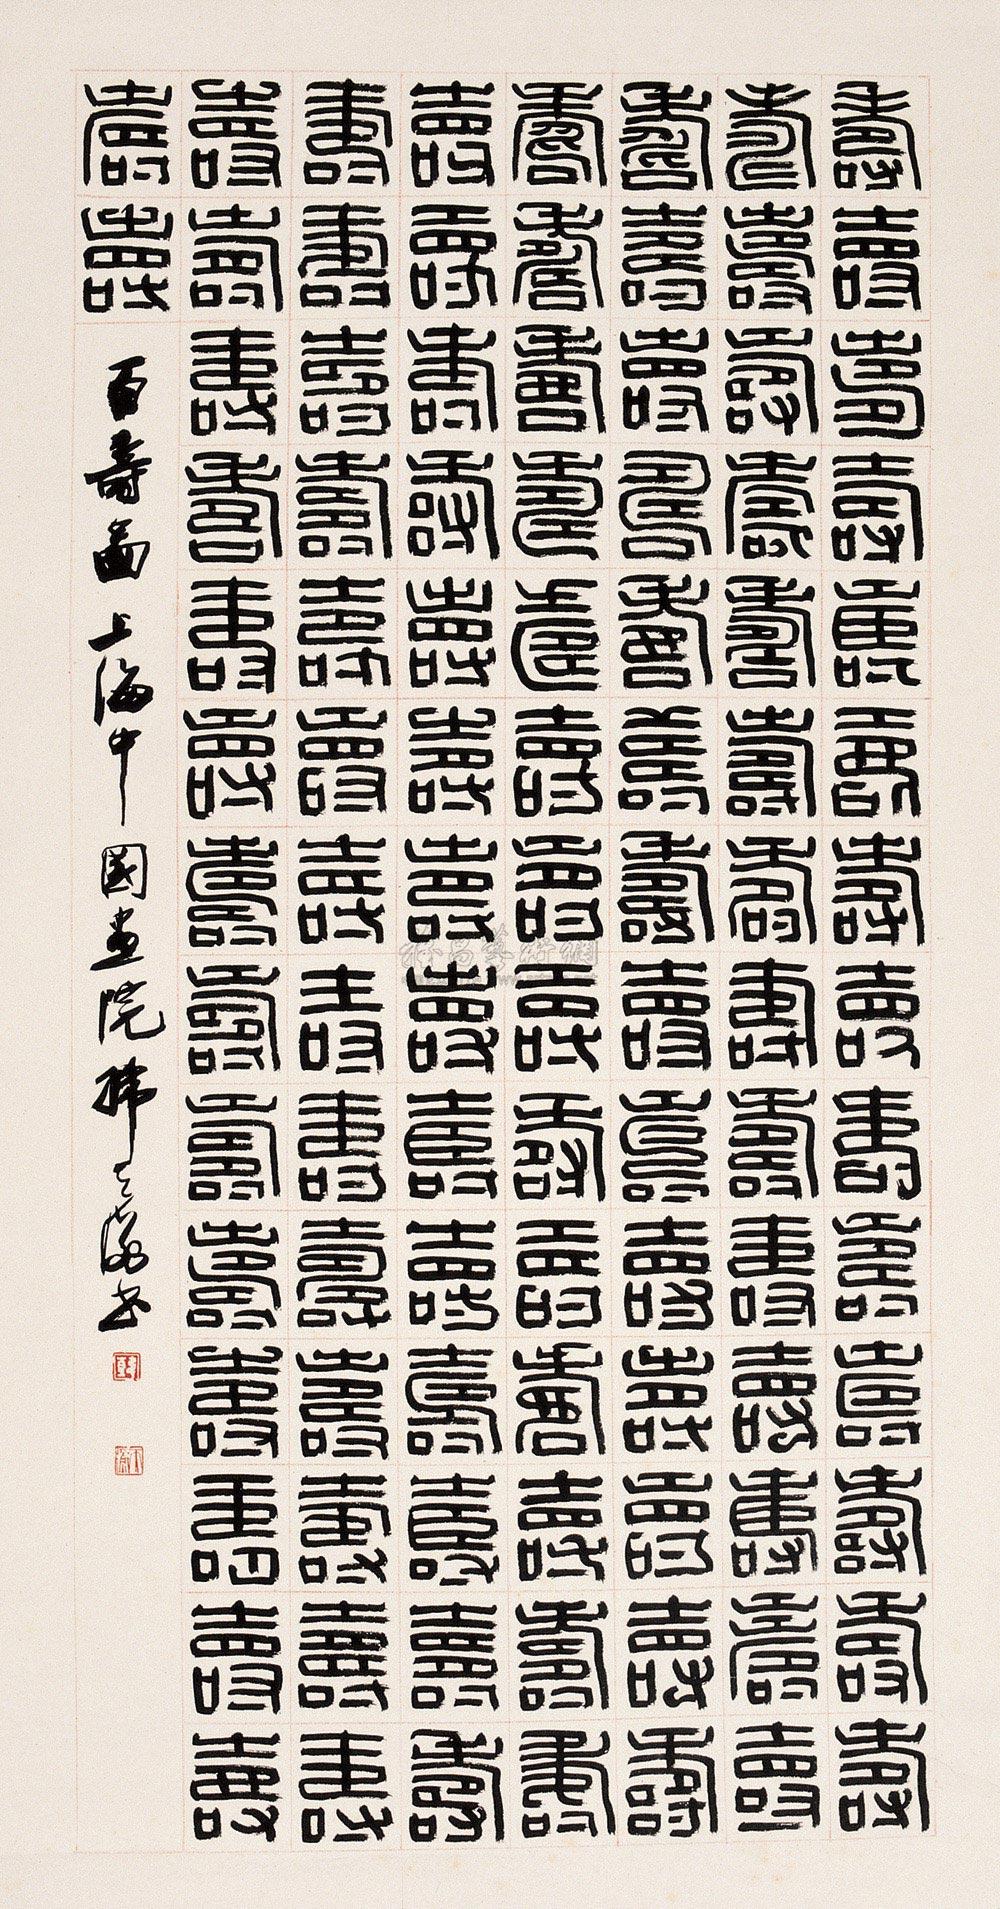 壽壽壽壽壽壽壽壽壽壽壽壽壽壽
壽壽壽壽壽壽壽壽壽壽壽壽壽壽
壽壽壽壽壽壽壽壽壽壽壽壽壽壽
壽壽壽壽壽壽壽壽壽壽壽壽壽壽
壽壽壽壽壽壽壽壽壽壽壽壽壽壽
壽壽壽壽壽壽壽壽壽壽壽壽壽壽
壽壽壽壽壽壽壽壽壽壽壽壽壽壽
壽壽
百壽圖 上海中國画院韩天衡书
雅昌藝術網